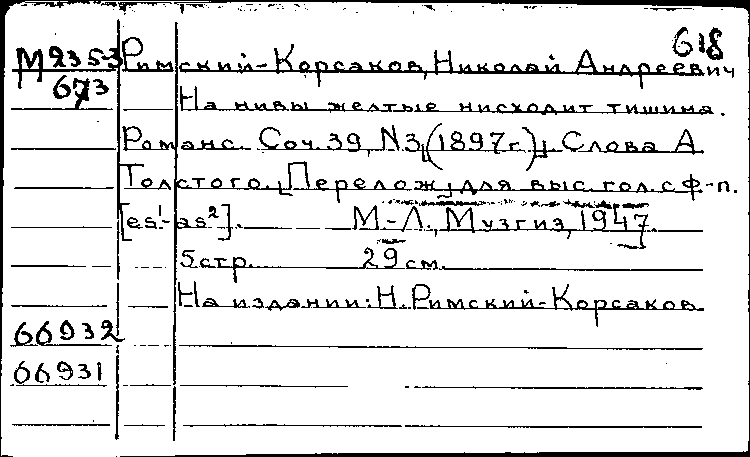 618
М 235-3 Римский-Корсаков, Николай Андреевич
673 На нивы желтые нисходит тишина.
Романс. Соч. 39, N3 [(1897г.)]. Слова А.
Толстого. [Перелож.] для выс. гол. с ф-п.
[es¹-as²]. М.-Л., Музгиз, 1947.
5 стр. 29 см.
На издании: Н. Римский-Корсаков.
66932
66931